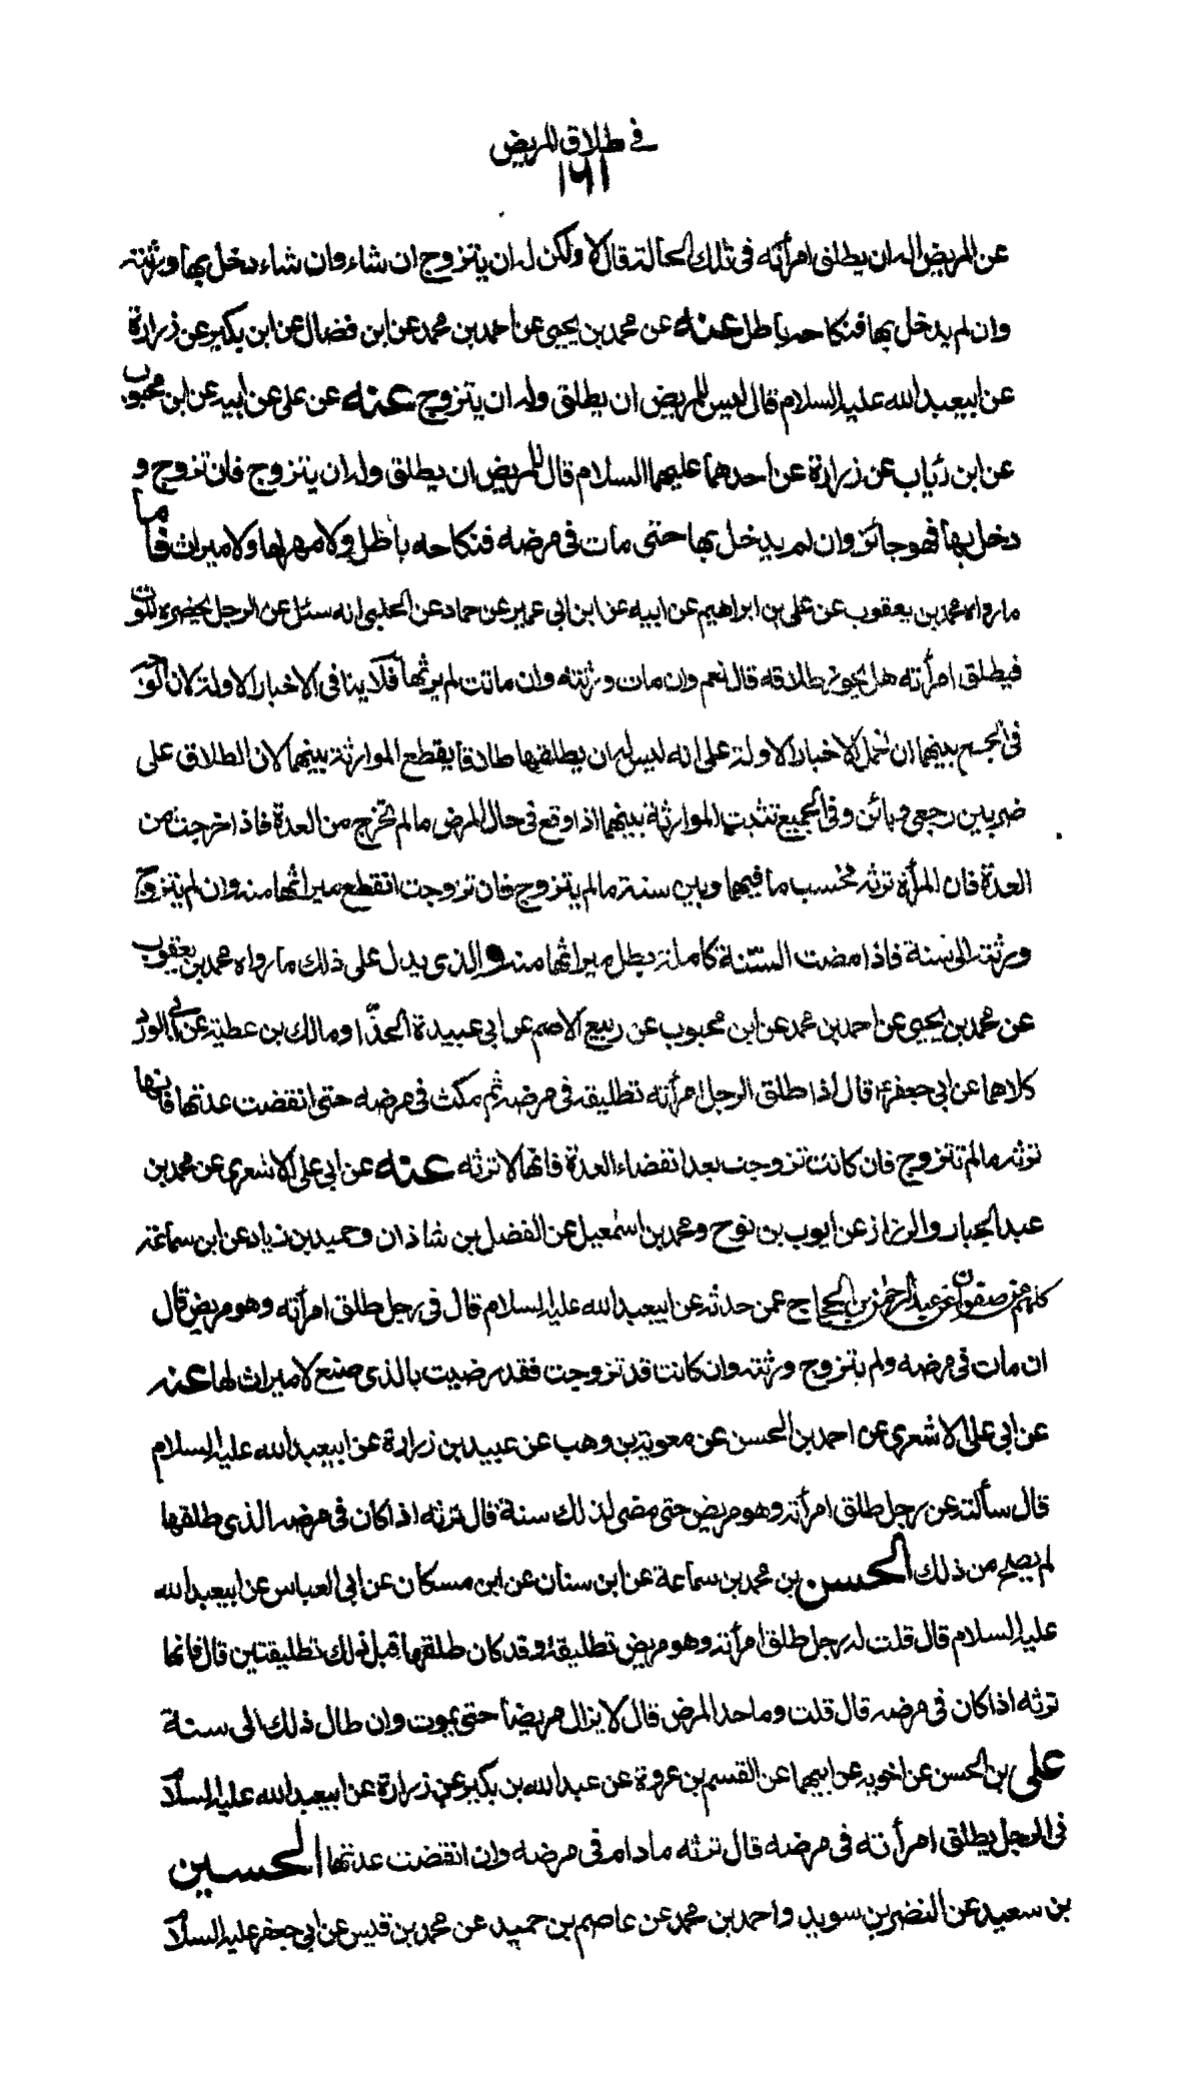 في طلاق المريض
١٦١
عن المريض اله ان يطلق امرأته في تلك الحالة قال لا ولكن له ان يتزوج ان شاء وان شاء دخل بها ورثته
وان لم يدخل بها فنكاحه باطل عنه عن محمد بن يحيى عن احمد بن محمد عن ابن فضال عن ابن بكير عن زرارة
عن ابيعبد الله عليه السلام قال ليس للمريض ان يطلق وله ان يتزوج عنه عن علي عن ابيه عن ابن محبوب
عن ابن رئاب عن زرارة عن احدهما عليهما السلام قال للمريض ان يطلق وله ان يتزوج فان تزوج و
دخل بها فهو جائز وان لم يدخل بها حتى مات في مرضه فنكاحه باطل ولا مهر لها ولا ميراث فاما
ما رواه محمد بن يعقوب عن علي بن ابراهيم عن ابيه عن ابن ابي عمير عن حماد عن الحلبي انه سئل عن الرجل يحضره الموت
فيطلق امرأته هل يجوز طلاقه قال نعم وان مات ورثته وان ماتت لم يرثها فلا ينافي الاخبار الاولة لان الوجه
في الجمع بينهما ان نحمل الاخبار الاولة على انه ليس له ان يطلقها طلاقا يقطع الموارثة بينهما لان الطلاق على
ضربين رجعي وبائن وفي الجميع تثبت الموارثة بينهما اذا وقع في حال المرض ما لم تخرج من العدة فاذا خرجت من
العدة فان المرأة ترثه بحسب ما فيها وبين سنة ما لم يتزوج فان تزوجت انقطع ميراثها منه وان لم يتزوج
ورثته الى سنة فاذا مضت السنة كاملة بطل ميراثها منه والذي يدل على ذلك ما رواه محمد بن يعقوب
عن محمد بن يحيى عن احمد بن محمد عن ابن محبوب عن ربيع الاصم عن ابي عبيدة الحذّا ومالك بن عطية عن ابي الورد
كلاهما عن ابي جعفرؑ قال اذا طلق الرجل امرأته تطليقة في مرضه ثم مكث في مرضه حتى انقضت عدتها فانها
ترثه ما لم تتزوج فان كانت تزوجت بعد انقضاء العدة فانها لا ترثه عنه عن ابي علي الاشعري عن محمد بن
عبد الجبار والرزاز عن ايوب بن نوح ومحمد بن اسمعيل عن الفضل بن شاذان وحميد بن زياد عن ابن سماعة
كلهم عن صفوان عن عبد الرحمن بن الحجاج عمن حدثه عن ابيعبد الله عليه السلام قال في رجل طلق امرأته وهو مريض قال
ان مات في مرضه ولم يتزوج ورثته وان كانت قد تزوجت فقد رضيت بالذي صنع لا ميراث لها عنه
عن ابي علي الاشعري عن احمد بن الحسن عن معوية بن وهب عن عبيد بن زرارة عن ابيعبد الله عليه السلام
قال سألته عن رجل طلق امرأته وهو مريض حتى مضى لذلك سنة قال ترثه اذا كان في مرضه الذي طلقها
لم يصح من ذلك الحسن بن محمد بن سماعة عن ابن سنان عن ابن مسكان عن ابي العباس عن ابيعبد الله
عليه السلام قال قلت له رجل طلق امرأته وهو مريض تطليقة وقد كان طلقها قبل ذلك تطليقتين قال فانها
ترثه اذا كان في مرضه قال قلت وما حد المرض قال لا يزال مريضا حتى يموت وان طال ذلك الى سنة
علي بن الحسن عن اخويه عن ابيهما عن القسم بن عروة عن عبد الله بن بكير عن زرارة عن ابيعبد الله عليه السلام
في الرجل يطلق امرأته في مرضه قال ترثه مادام في مرضه وان انقضت عدتها الحسين
بن سعيد عن النضر بن سويد واحمد بن محمد عن عاصم بن حميد عن محمد بن قيس عن ابي جعفر عليه السلام